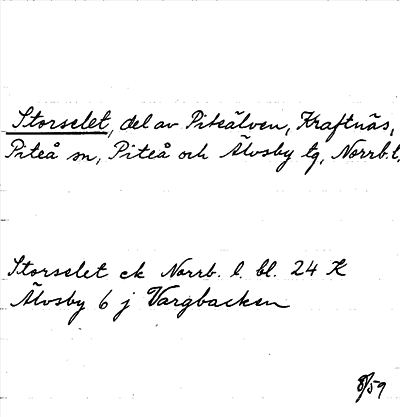 Storselet, del av Piteälven, Kraftnäs,
Piteå sn, Piteå och Älvsby tg, Norrb.l.
Storselet ek Norrb. l. bl. 24 K
Älvsby 6 j Vargbacken
8/59